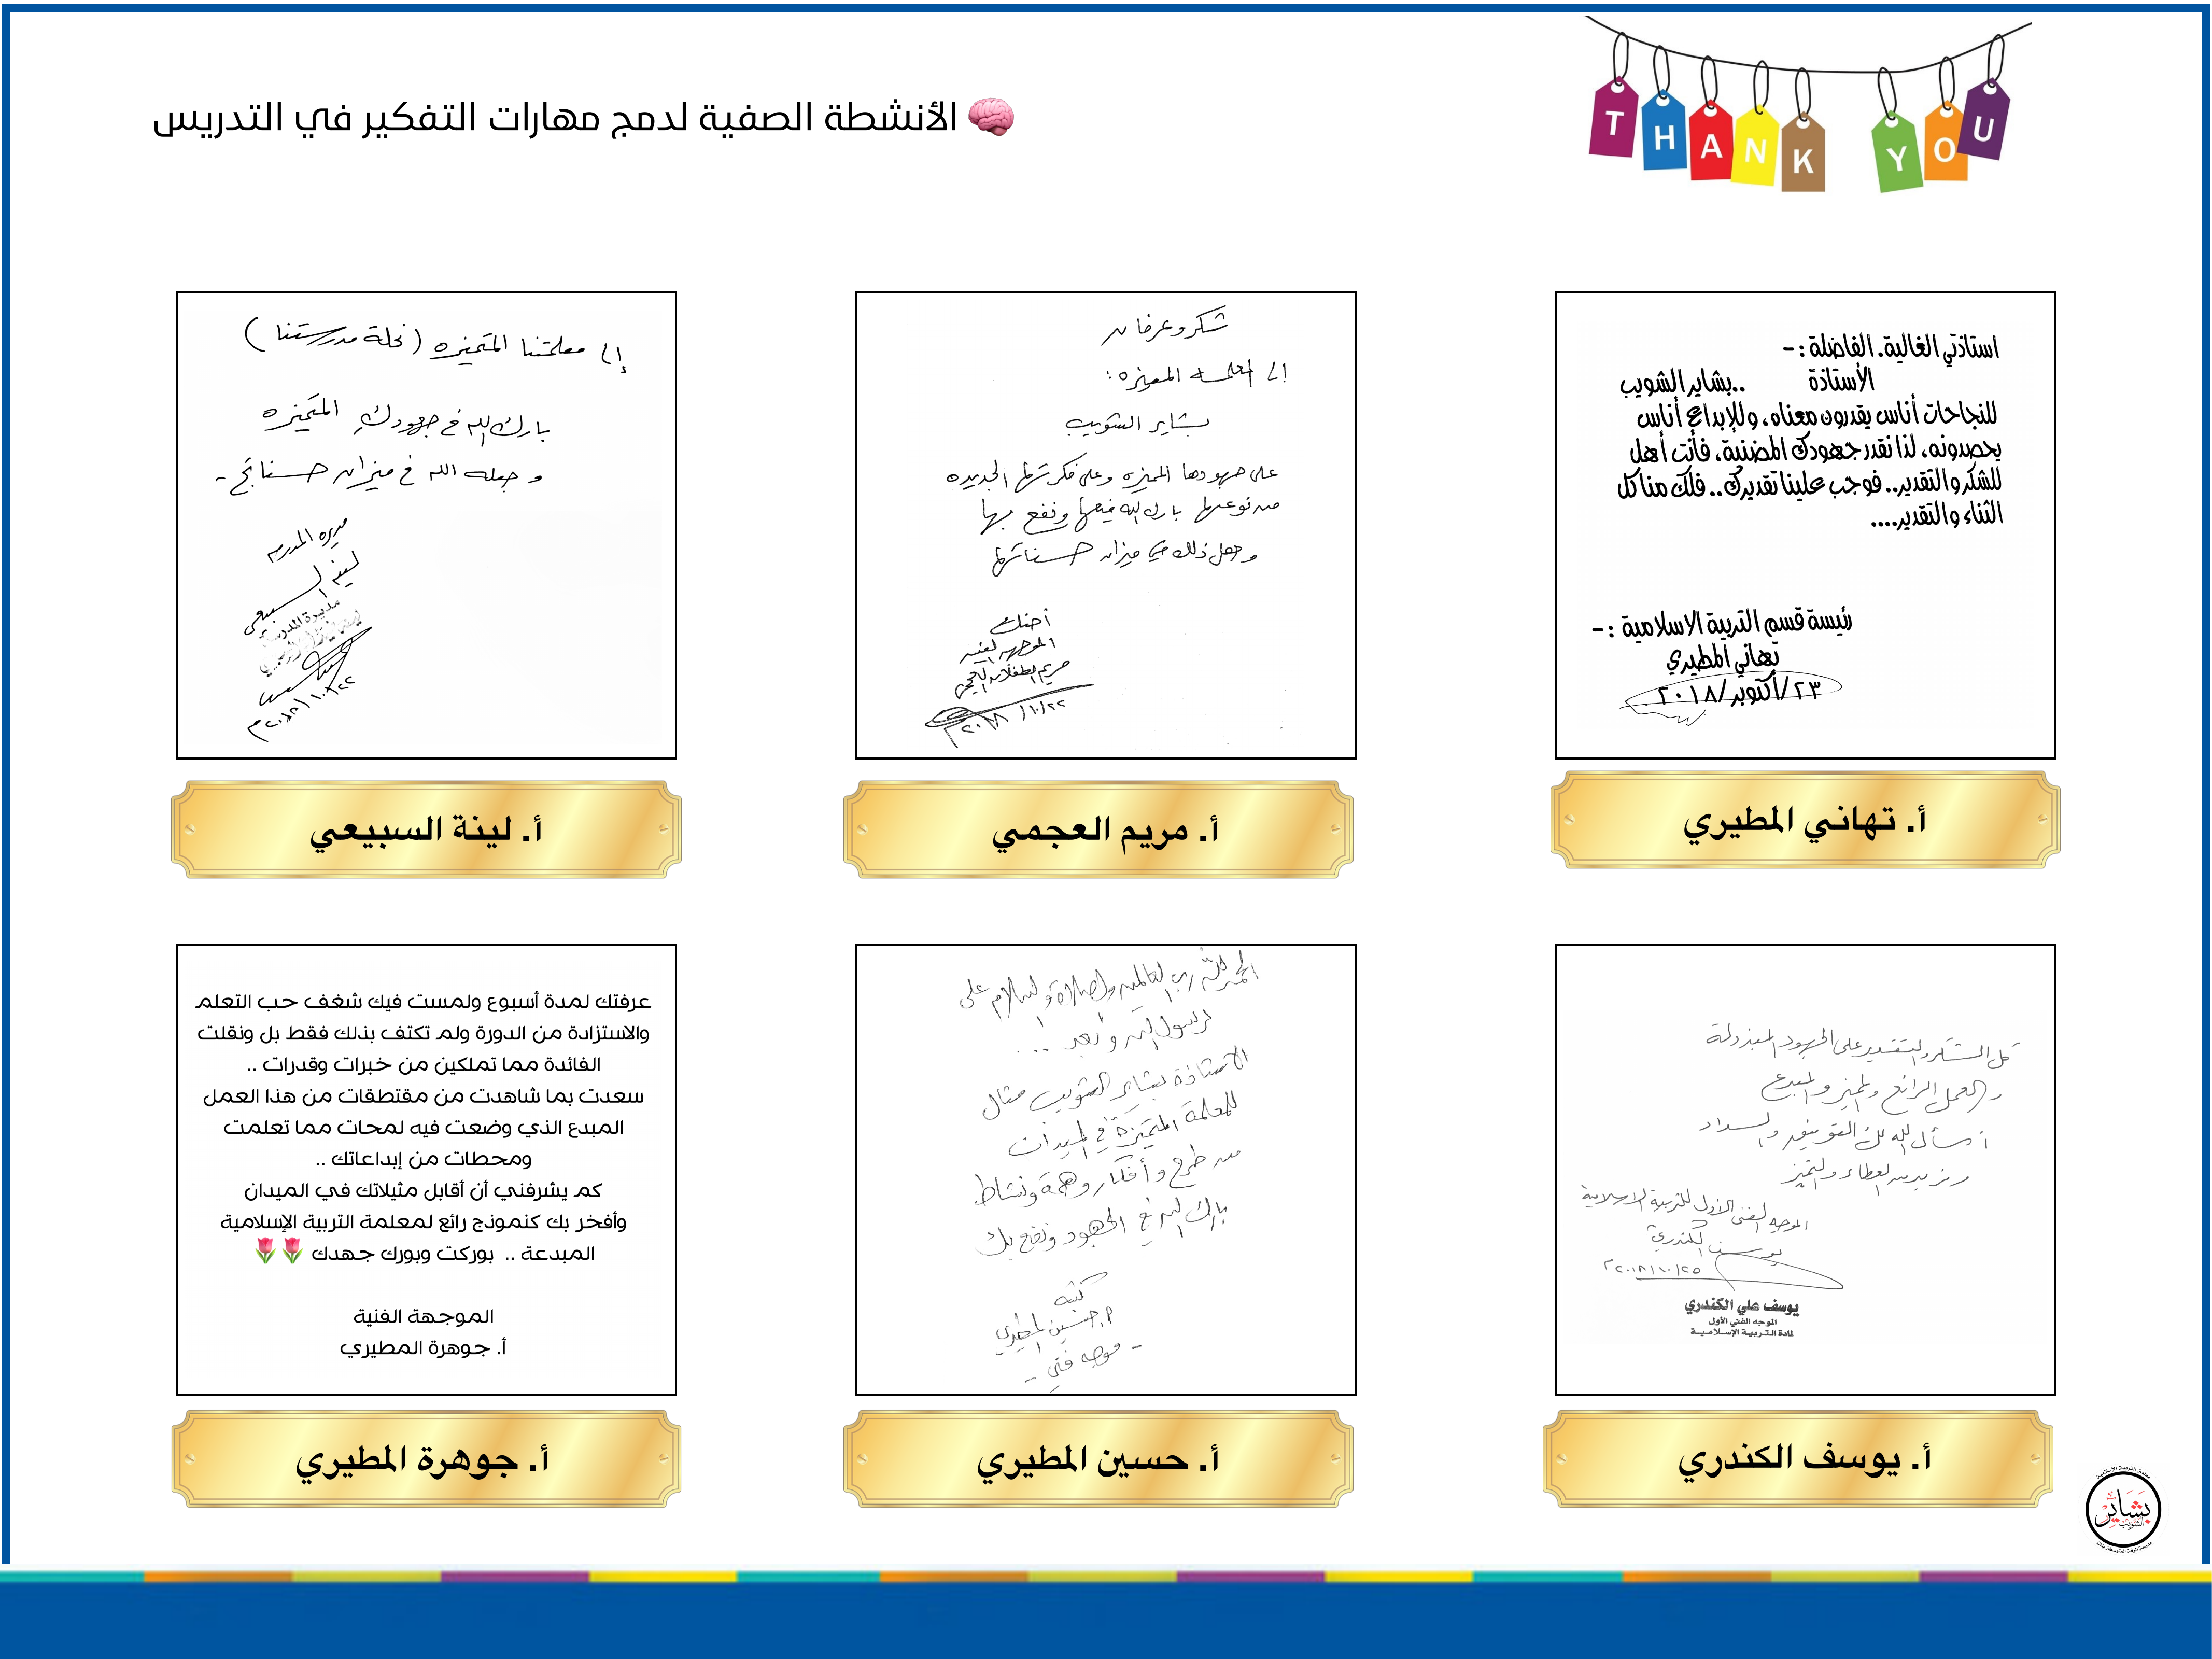 THANK YOU
الأنشطة الصفية لدمج مهارات التفكير في التدريس
استاذتي الغالية. الفاضلة :-
الأستاذة ..بشاير الشويب
للنجاحات أناس يقدرون معناه، وللإبداع أناس
يحصدونه، لذا نقدر جهودك المضنية، فأنت أهل
للشكر والتقدير.. فوجب علينا تقديرك.. فلك منا كل
الثناء والتقدير....
رئيسة قسم التربية الاسلامية :-
تهاني المطيري
٢٣/أكتوبر/٢٠١٨
أ. تهاني المطيري
شكر وعرفان
إلى المعلمة المميزه :
بشاير الشويب
على جهودها المميزه وعلى فكرتها الجديده
من نوعها بارك الله فيها ونفع بها
وجعل ذلك في ميزان حسناتها
أختك
الموجهه الفنيه
مريم العجمي
٢٠١٨/١٠/٢٢م
أ. مريم العجمي
إلى معلمتنا المتميزه (نحلة مدرستنا)
بارك الله في جهودكِ المتميزه
وجعله الله في ميزان حسناتج -
مديره المدرسه
لينه السبيعي
مديرة المدرسة
٢٠١٨/١٠/٢٢م
أ. لينة السبيعي
كل الشكر والتقدير على الجهود المبذولة
والعمل الرائع والمميز والمبدع
أسأل الله لك التوفيق والسداد
ومزيد من العطاء والتميز
الموجه الفني الأول للتربية الاسلامية
يوسف الكندري
٢٠١٨/١٠/٢٥م
يوسف علي الكندري
الموجه الفني الأول
لمادة التربية الإسلامية
أ. يوسف الكندري
الحمد لله رب العالمين والصلاة والسلام على
رسول الله وبعد ...
الاستاذة بشاير الشويب مثال
للمعلمة المتميزة في الميدان
من طرح وأفكار وهمة ونشاط
بارك الله في الجهود ونفع بك
كتبه
أ. حسين المطيري
- موجه فني -
أ. حسين المطيري
عرفتك لمدة أسبوع ولمست فيك شغف حب التعلم
والاستزادة من الدورة ولم تكتف بذلك فقط بل ونقلت
الفائدة مما تملكين من خبرات وقدرات ..
سعدت بما شاهدت من مقتطقات من هذا العمل
المبدع الذي وضعت فيه لمحات مما تعلمت
ومحطات من إبداعاتك ..
كم يشرفني أن أقابل مثيلاتك في الميدان
وأفخر بك كنموذج رائع لمعلمة التربية الإسلامية
المبدعة .. بوركت وبورك جهدك
الموجهة الفنية
أ. جوهرة المطيري
أ. جوهرة المطيري
معلمة التربية الإسلامية
بشاير
الشويب